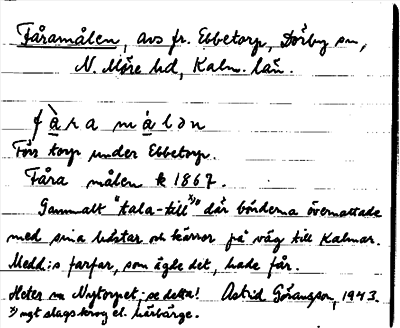 Fåramålen, avs fr. Ebbetorp, Dörby sn,
N. Möre hd, Kalm. län.
fàramálən
Förr torp under Ebbetorp.
Fåra målen k 1867.
Gammalt "tala-till" x) där bönderna övernattade
med sina hästar och kärror på väg till Kalmar.
Medd:s farfar, som ägde det, hade får.
Heter nu Nytorpet - se detta! Astrid Göransson, 1943.
x) ngt slags krog el. härbärge.